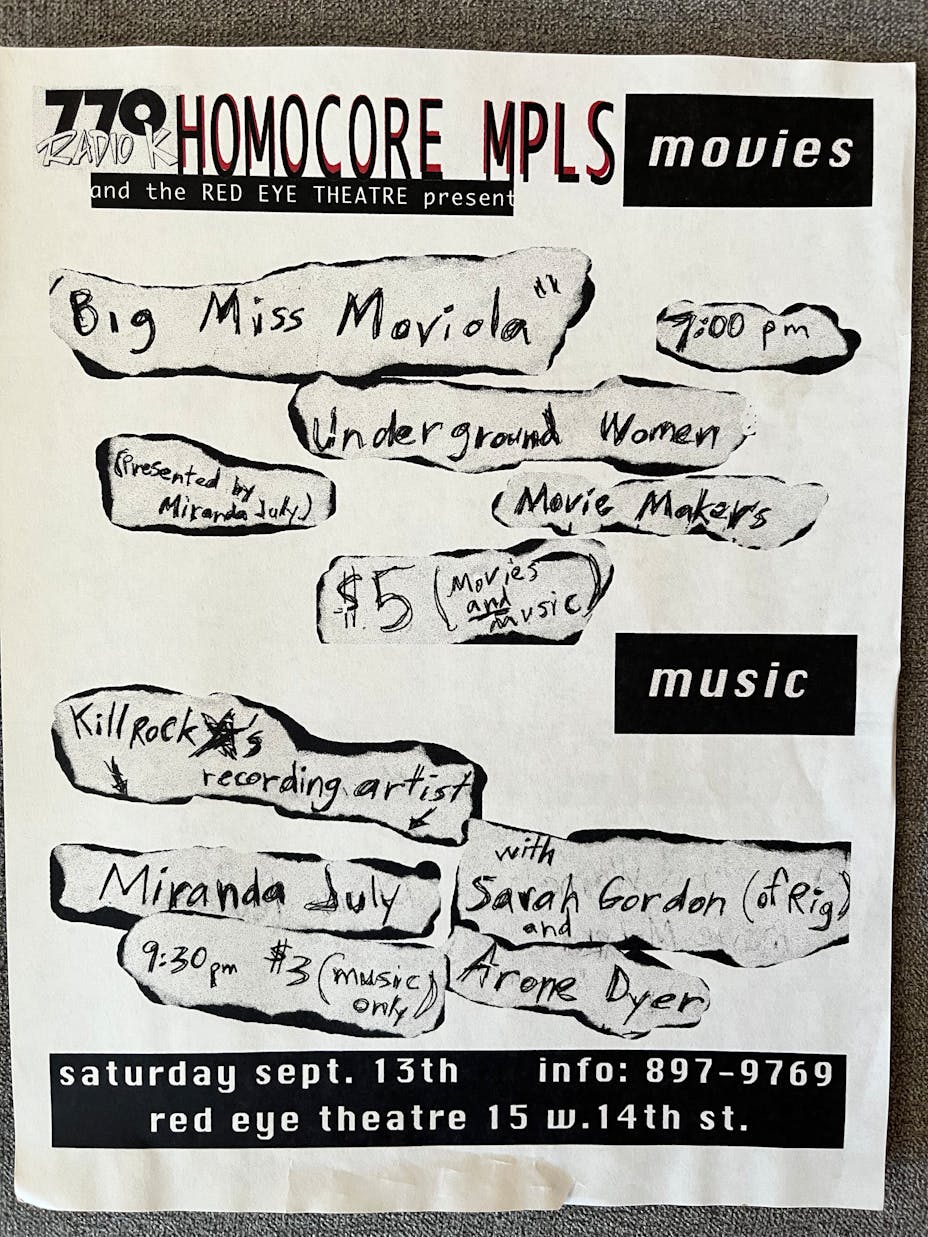 770
RADIO K
HOMOCORE MPLS
and the RED EYE THEATRE present
movies
"Big Miss Moviola"
pm
Underground Women
(Presented by
Miranda July)
Movie Makers
$5 (Movies
and
music)
music
Kill Rock ★'s
recording artist
Miranda July
with
Sarah Gordon (of Rig)
and
Arone Dyer
9:30 pm $3 (music
only)
saturday sept. 13th info: 897-9769
red eye theatre 15 w.14th st.